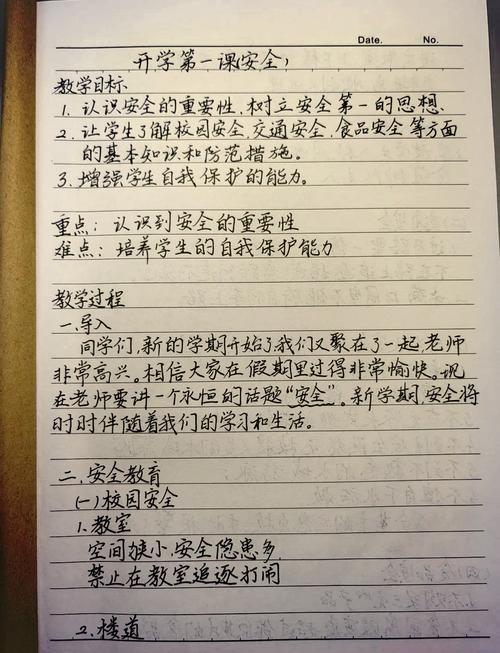 Date. No.
开学第一课(安全)
教学目标
1. 认识安全的重要性,树立安全第一的思想.
2. 让学生了解校园安全,交通安全,食品安全等方面
的基本知识和防范措施。
3. 增强学生自我保护的能力。
重点: 认识到安全的重要性
难点: 培养学生的自我保护能力
教学过程
一.导入
同学们,新的学期开始了,我们又聚在了一起,老师
非常高兴。相信大家在假期里过得非常愉快。现
在老师要讲一个永恒的话题“安全”。新学期,安全将
时时伴随着我们的学习和生活。
二.安全教育
(一)校园安全
1.教室
空间狭小,安全隐患多
禁止在教室追逐打闹
2.楼道